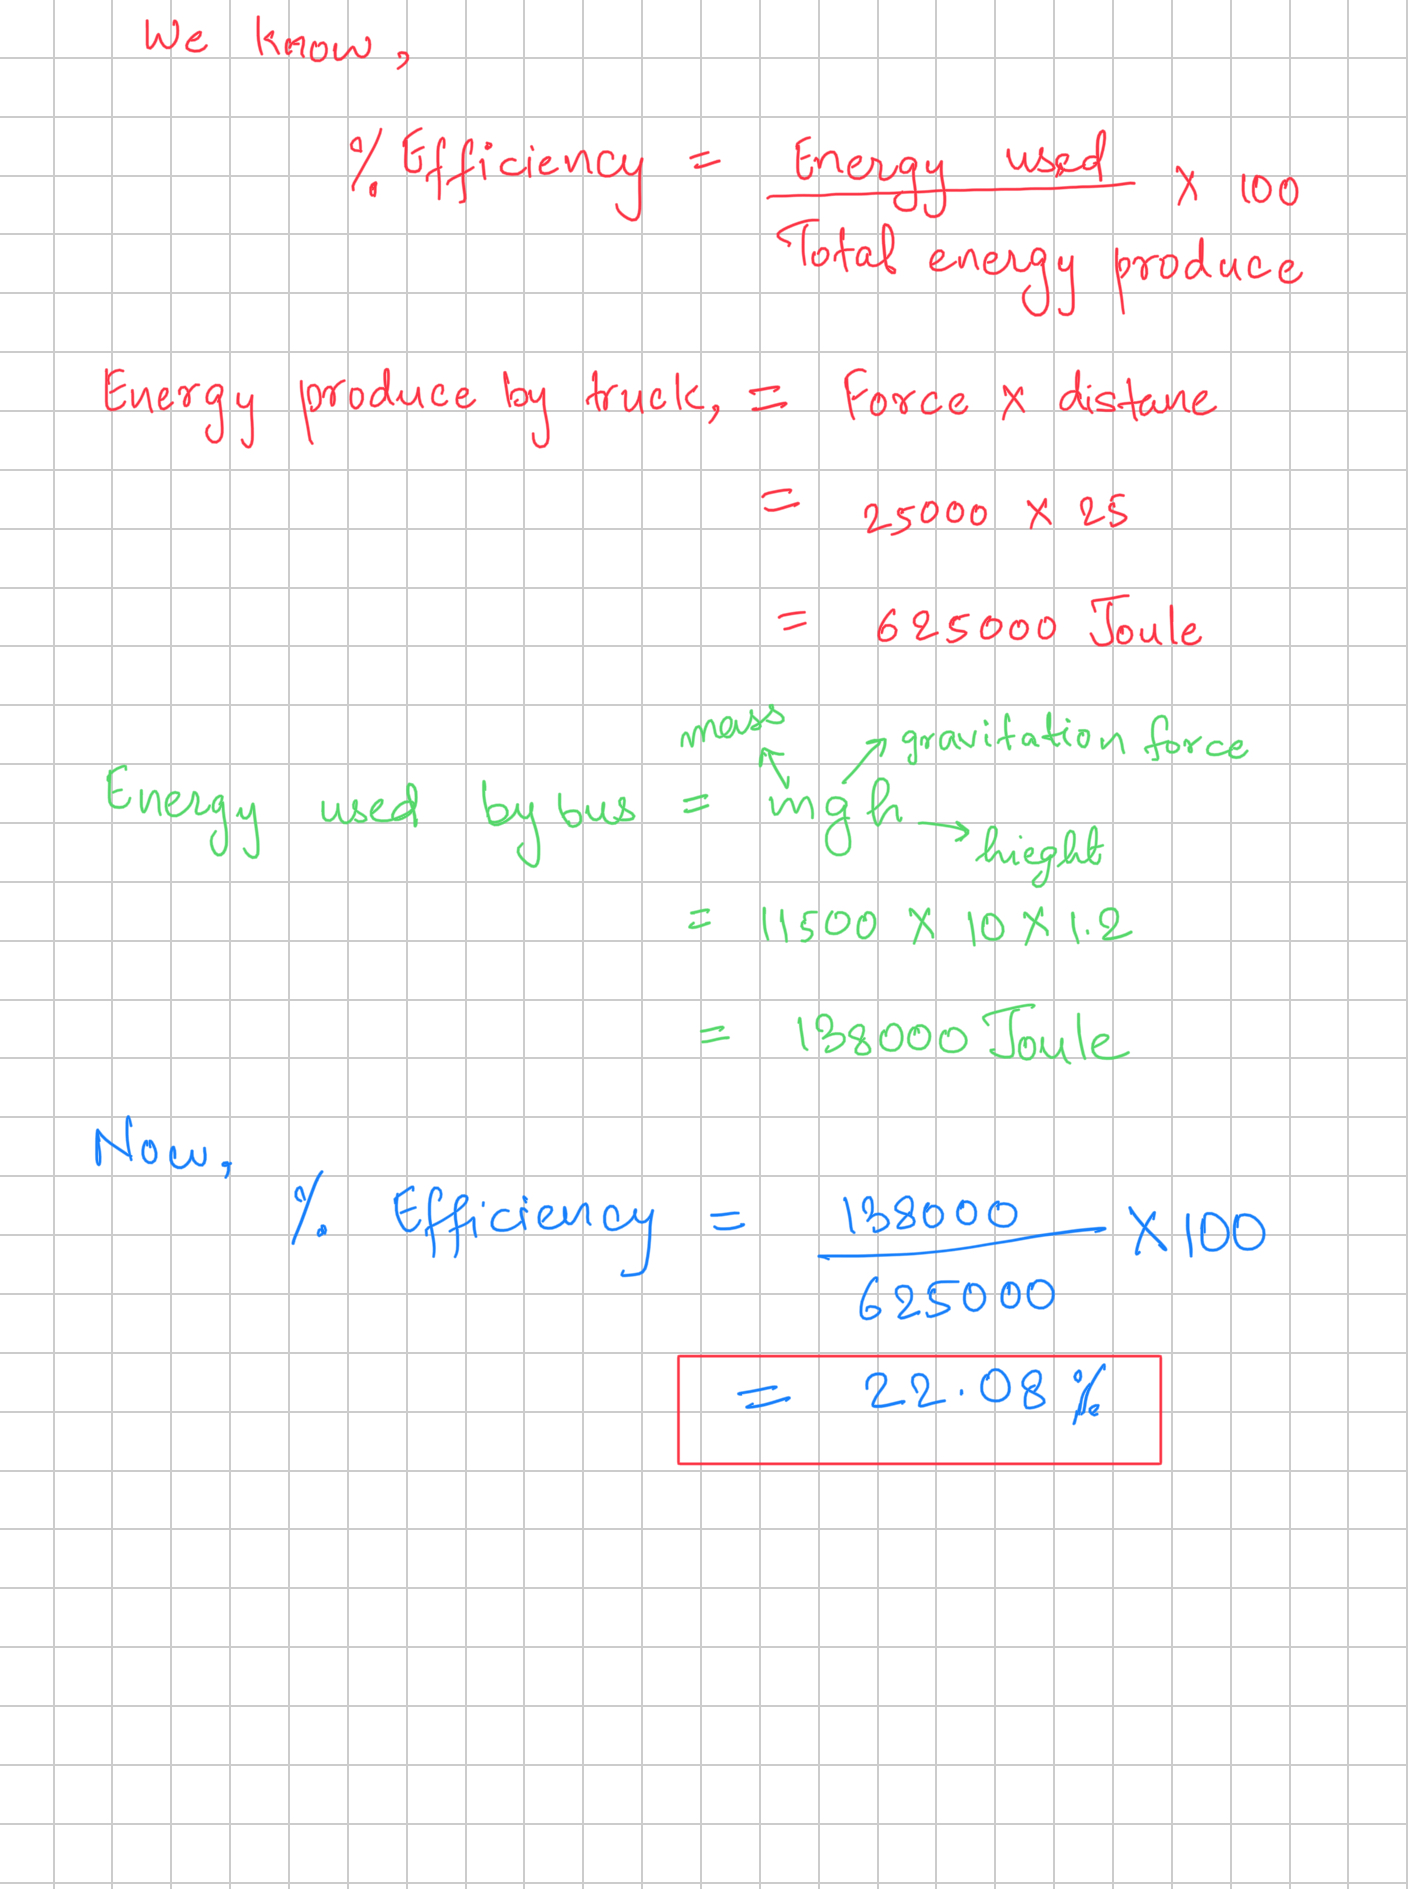 We know,
% Efficiency = Energy used / Total energy produce × 100
Energy produce by truck, = Force × distane
= 25000 × 25
= 625000 Joule
mass gravitation force
Energy used by bus = mgh
hieght
= 11500 × 10 × 1.2
= 138000 Joule
Now,
% Efficiency = 138000 / 625000 × 100
= 22.08 %